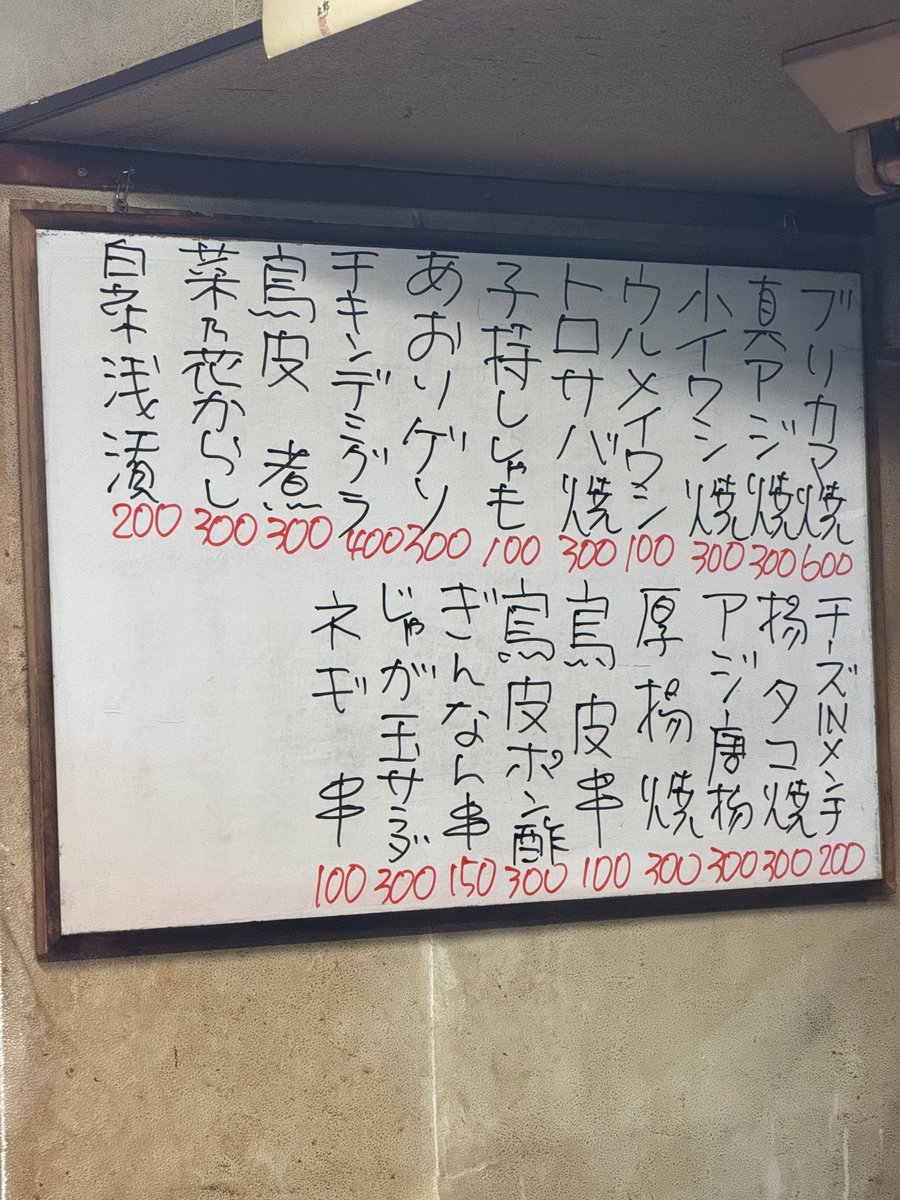 ブリカマ焼 600
真アジ焼 300
小イワシ焼 300
ウルメイワシ 100
トロサバ焼 300
子持ししゃも 100
あおりゲソ 300
チキンデミグラ 400
鳥皮 煮 300
菜乃花からし 300
白菜浅漬 200
チーズINメンチ 200
揚タコ焼 300
アジ唐揚 300
厚揚焼 300
鳥皮串 100
鳥皮ポン酢 300
ぎんなん串 150
じゃが玉サラダ 300
ネギ 串 100